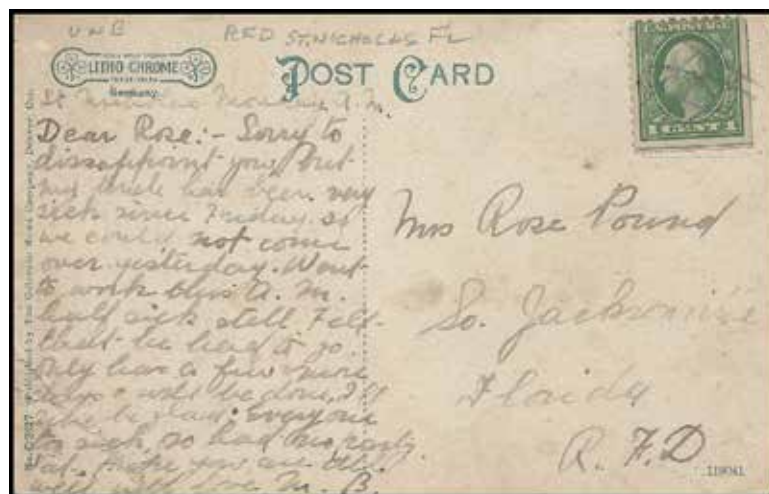 UNB RFD ST. NICHOLAS FL
LITHO-CHROME
Germany.
POST CARD
St Nicholas Monday A.M.
Dear Rose:- Sorry to
dissappoint you, but
my uncle has been very
sick since Friday, so
we could not come
over yesterday. Went
to work this A.M.
half sick still. Felt
that he had to go.
Only has a few more
days & will be done, I'll
be glad. Everyone
is sick, so had no party
Sat. Hope you are all
well with love M. B.
Mrs Rose Pound
So. Jacksonville
Florida
R. F. D
119041